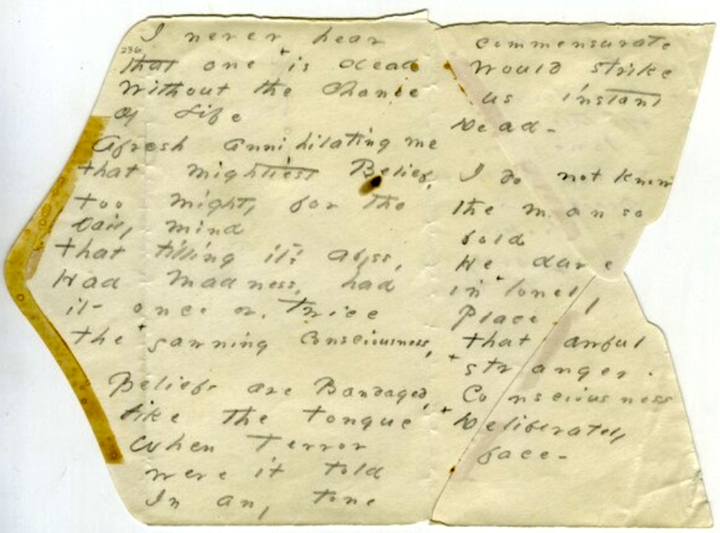 I never hear
236
that one + is dead
Without the Chance
Of Life
Afresh annihilating me
that mightiest Belief,
too mighty for the
Daily mind
that tilling it's abyss,
Had Madness, had
it once or, Twice
the + yawning Consciousness,
Beliefs are Bandaged,
like the Tongue
When Terror
were it told
In any Tone
commensurate
Would strike
us instant
Dead -
I do not know
the man so
bold
He dare
in lonely
Place
that awful
+ stranger.
Consciousness
+ Deliberately
face -